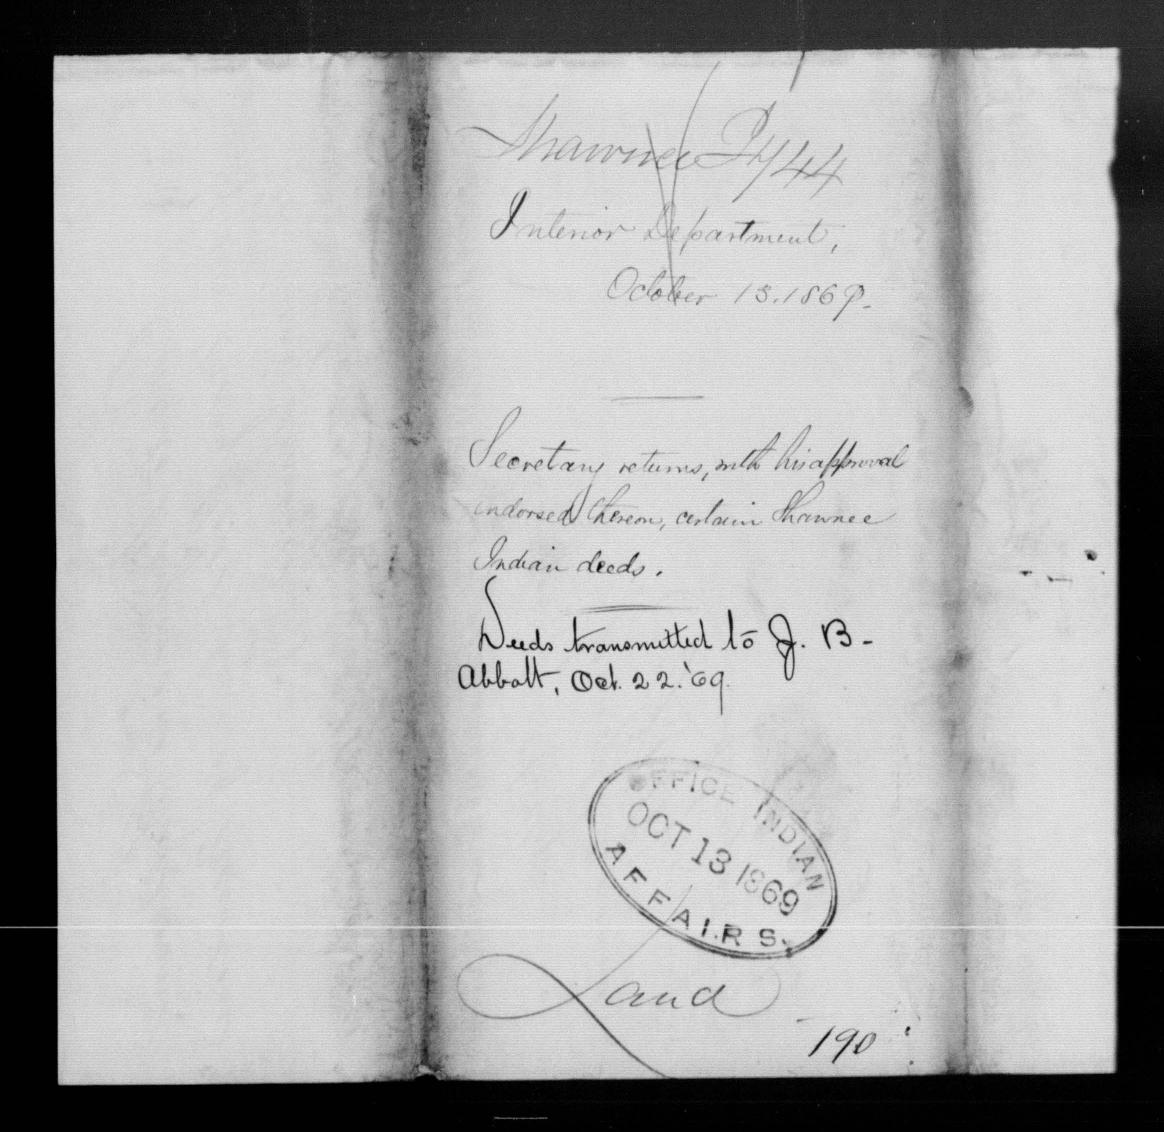 Shawnee I 744
Interior Department,
October 13. 1869.
Secretary returns, with his approval
endorsed thereon, certain Shawnee
Indian deeds.
Deeds transmitted to J. B.
Abbott, Oct. 22. '69.
OFFICE INDIAN
OCT 13 1869
AFFAIRS.
Land
190